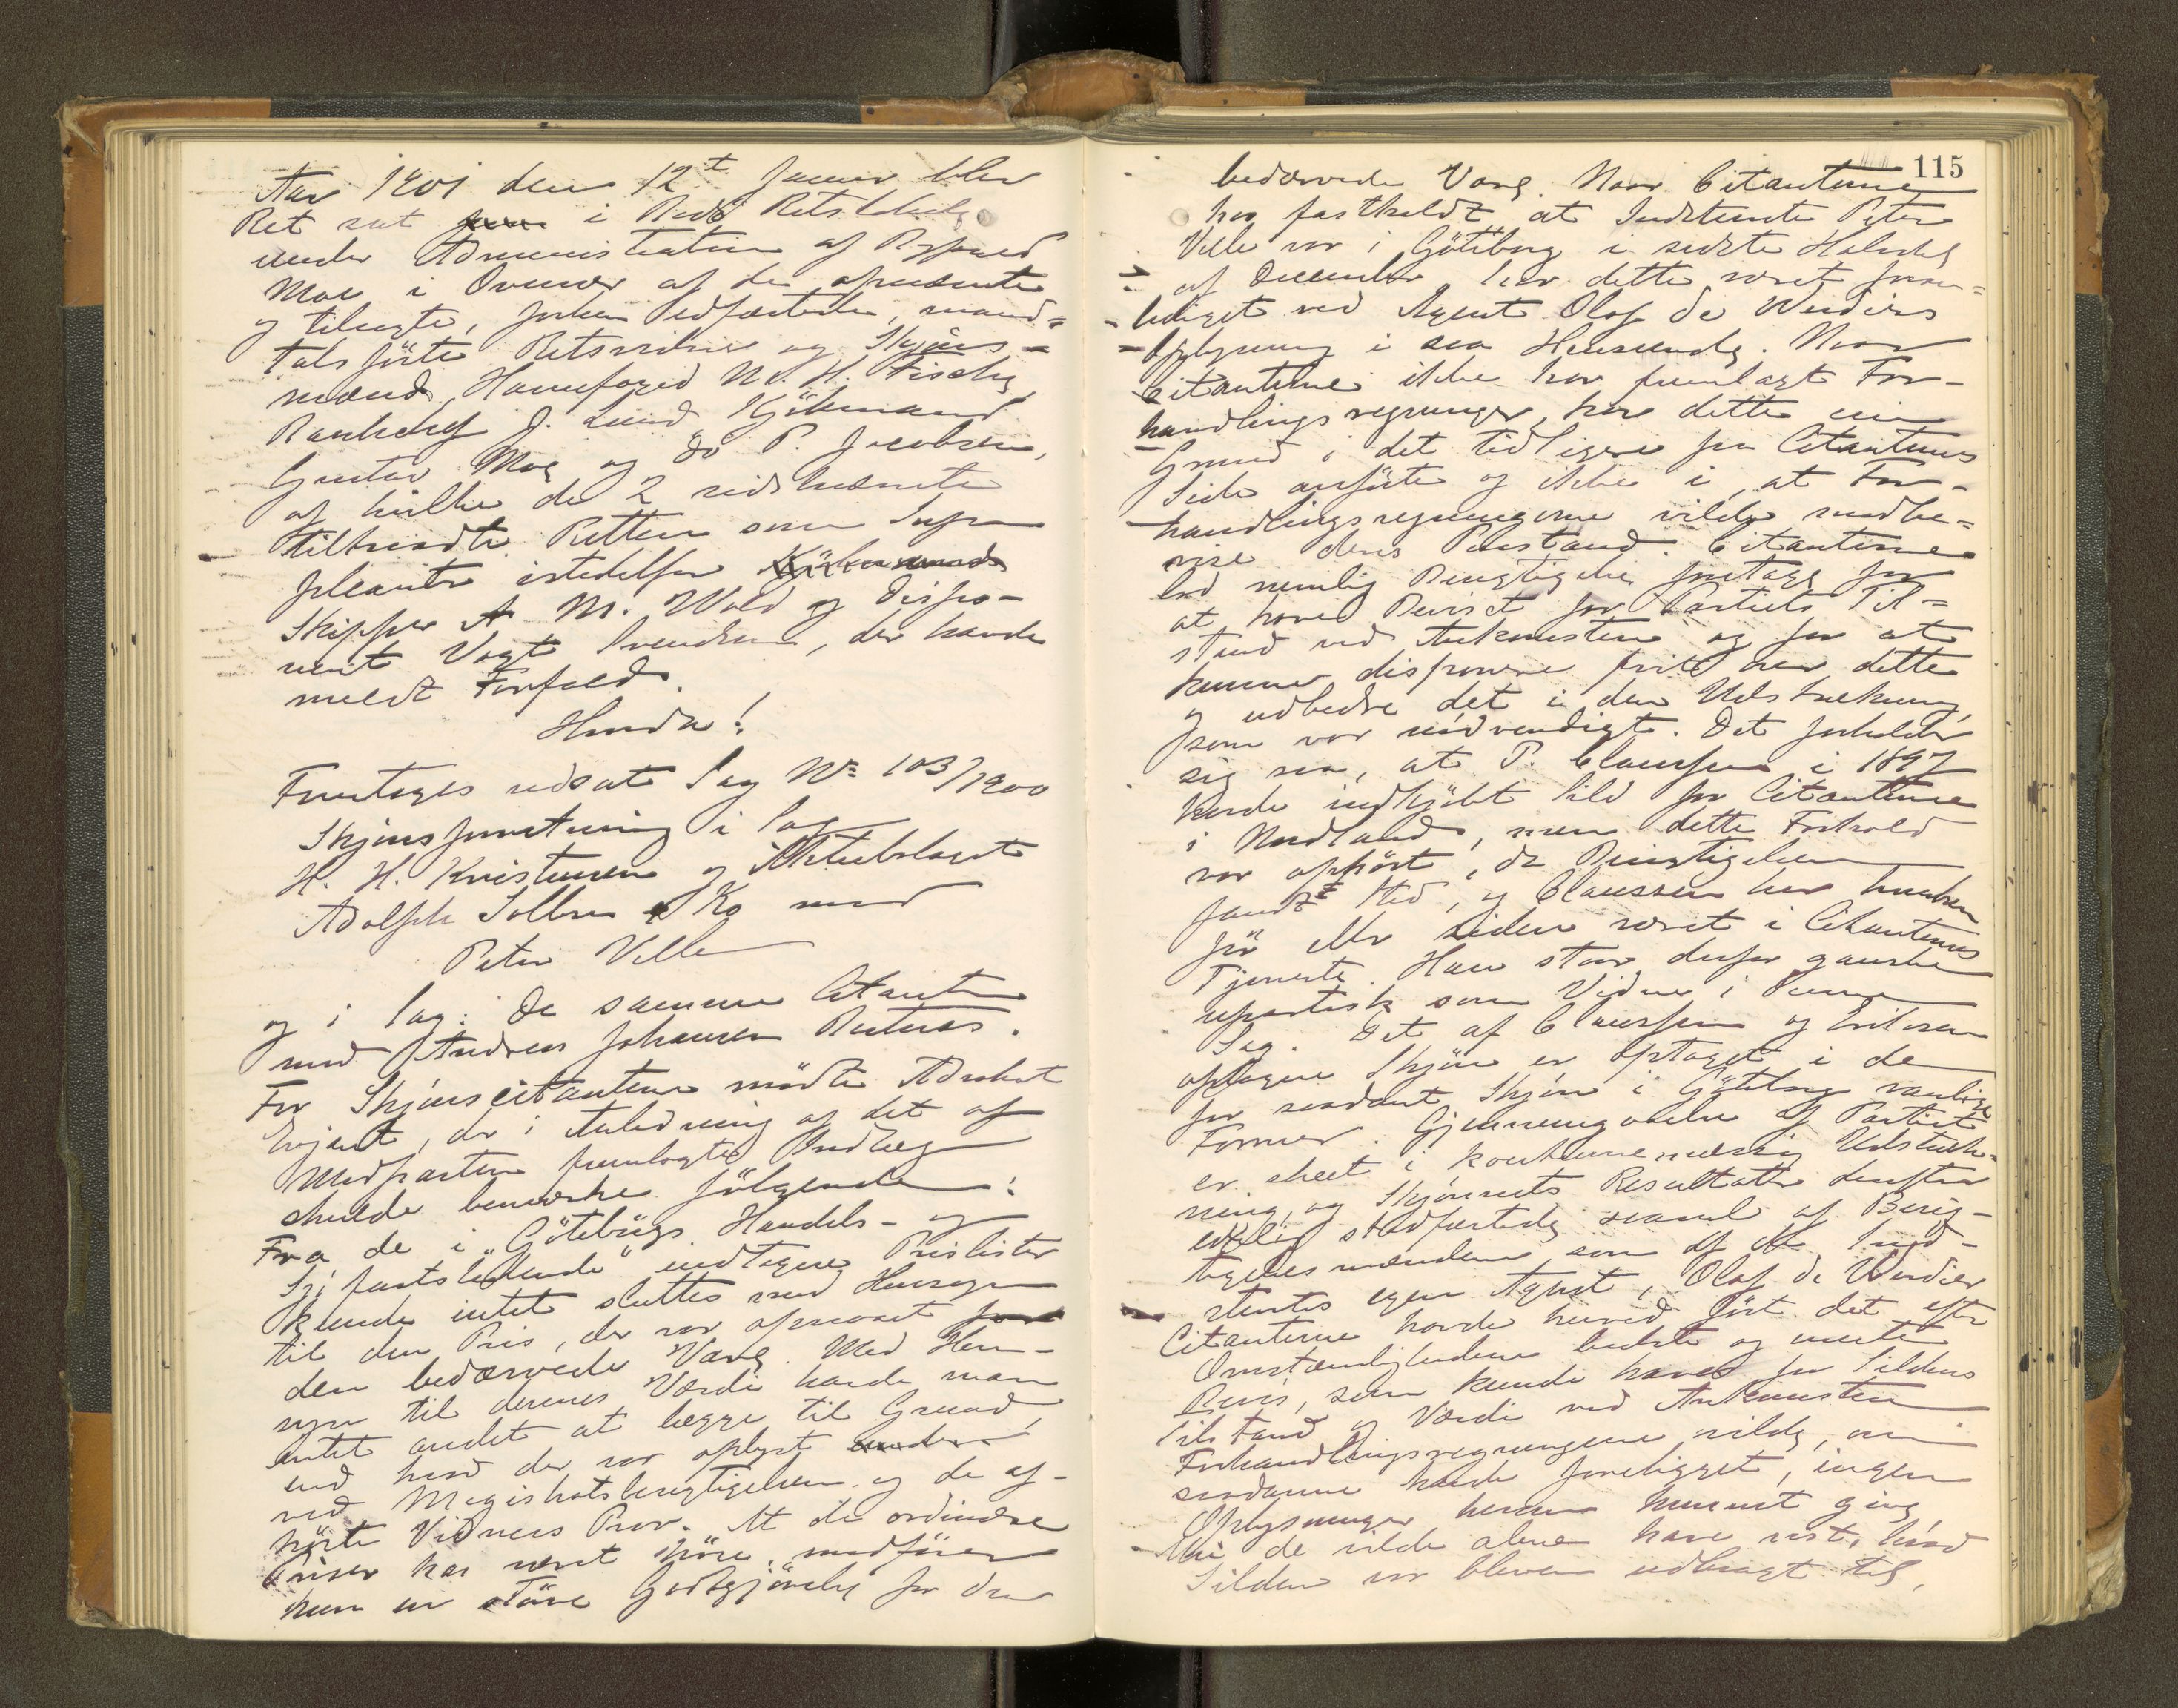 Aar 1901 den 12t Januar blev
Ret sat i Bodö Retslokale
under Administration af Byfoged
Moe i Overvær af de opnævnte
og tilsagte, forhen edfæstede, mand=
talsförte Retsvidner og Skjöns=
mænd, Havnefoged M. H. Fische,
Bankchef J. Lund, Kjöbmand
Gustav Moe og do P. Jacobsen,
af hvilke de 2 sidstnævnte
tiltraadte Retten som Sup=
pleanter istedetfor
Skipper A M. Wold og Dispo-
nent Vogt Svendsen, der havde
meldt Forfald.
Hvorda!
Foretoges udsat Sag No 103/1900
Skjönsforretning i Sag
H. H. Kristensen og Aktiebolaget
Adolph Sollren & Ko mod
Peter Velle
og i Sag: De samme Citanter
mod Andreas Johansen Rutnæs.
For Skjönscitanterne mödte Advokat
Erjent, der i Anledning af det af
Modparten fremlagte Indlæg
skulde bemærke fölgende:
Fra de i "Göteborgs Handels- og
Sjöfartstidende" indtagne Prislister
kunde intet sluttes med Hensyn
til den Pris, der var opnaaet
den bedærvede Vare. Med Hen-
syn til dennes Værdi havde man
intet andet at lægge til Grund,
end hvad der var oplyst
ved Magistratsbesigtigelsen og de af-
hörte Vidners Prov. At de ordinære
Priser har været höie, medförer
kun en större Godtgjörelse for den
115
bedærvede Vare. Naar Citanterne
har fastholdt at Indstevnte Peter
Velle var i Göteborg i sidste Halvdel
af December, har dette været foran=
lediget ved Agent Olof de Verdiers
Oplysning i saa Henseende. Naar
Citanterne ikke har fremlagt For-
handlingsregninger, har dette sin
Grund i det tidligere fra Citantens
Side anförte og ikke i, at For-
handlingsregningerne vilde modbe=
vise deres Paastand. Citanterne
lod nemlig Besigtigelse foretage for
at have Beviset for Partiets Til=
stand ved Ankomsten og for at
kunne disponere frit over dette
og udbedre det i den Udstrækning,
som var nödvendigt. Det forholder
sig saa, at P. Claussen i 1897
havde indkjöbt Sild for Citanterne
i Nordland, men dette Forhold
var ophört, da Besigtigelsen
fandt Sted, og Claussen har hverken
för eller siden været i Citanternes
Tjeneste. Han staar derfor ganske
upartisk som Vidne i denne
Sag. Det af Claussen og Eriksen
optagne Skjön er optaget i de
for saadant Skjön i Göteborg vanlige
Former. Gjennemgaaelse af Partiet
er skeet i kontramæssig Udstræk=
ning, og Skjönnets Resultatter derefter
edelig stadfæstede saavel af Besig-
tigelsesmændene som af de Ind-
stevntes egen Agent, Olof de Verdier
Citanterne havde herved fört det efter
Omstændighederne bedste og meste
Bevis, som kunde haves for Sildens
Tilstand og Værdi ved Ankomsten
Forhandlingsregningerne vilde, om
saadanne havde foreligget, ingen
Oplysninger herom kunnet give,
Thi de vilde alene have vist, hvad
Silden var bleven udbragt til,